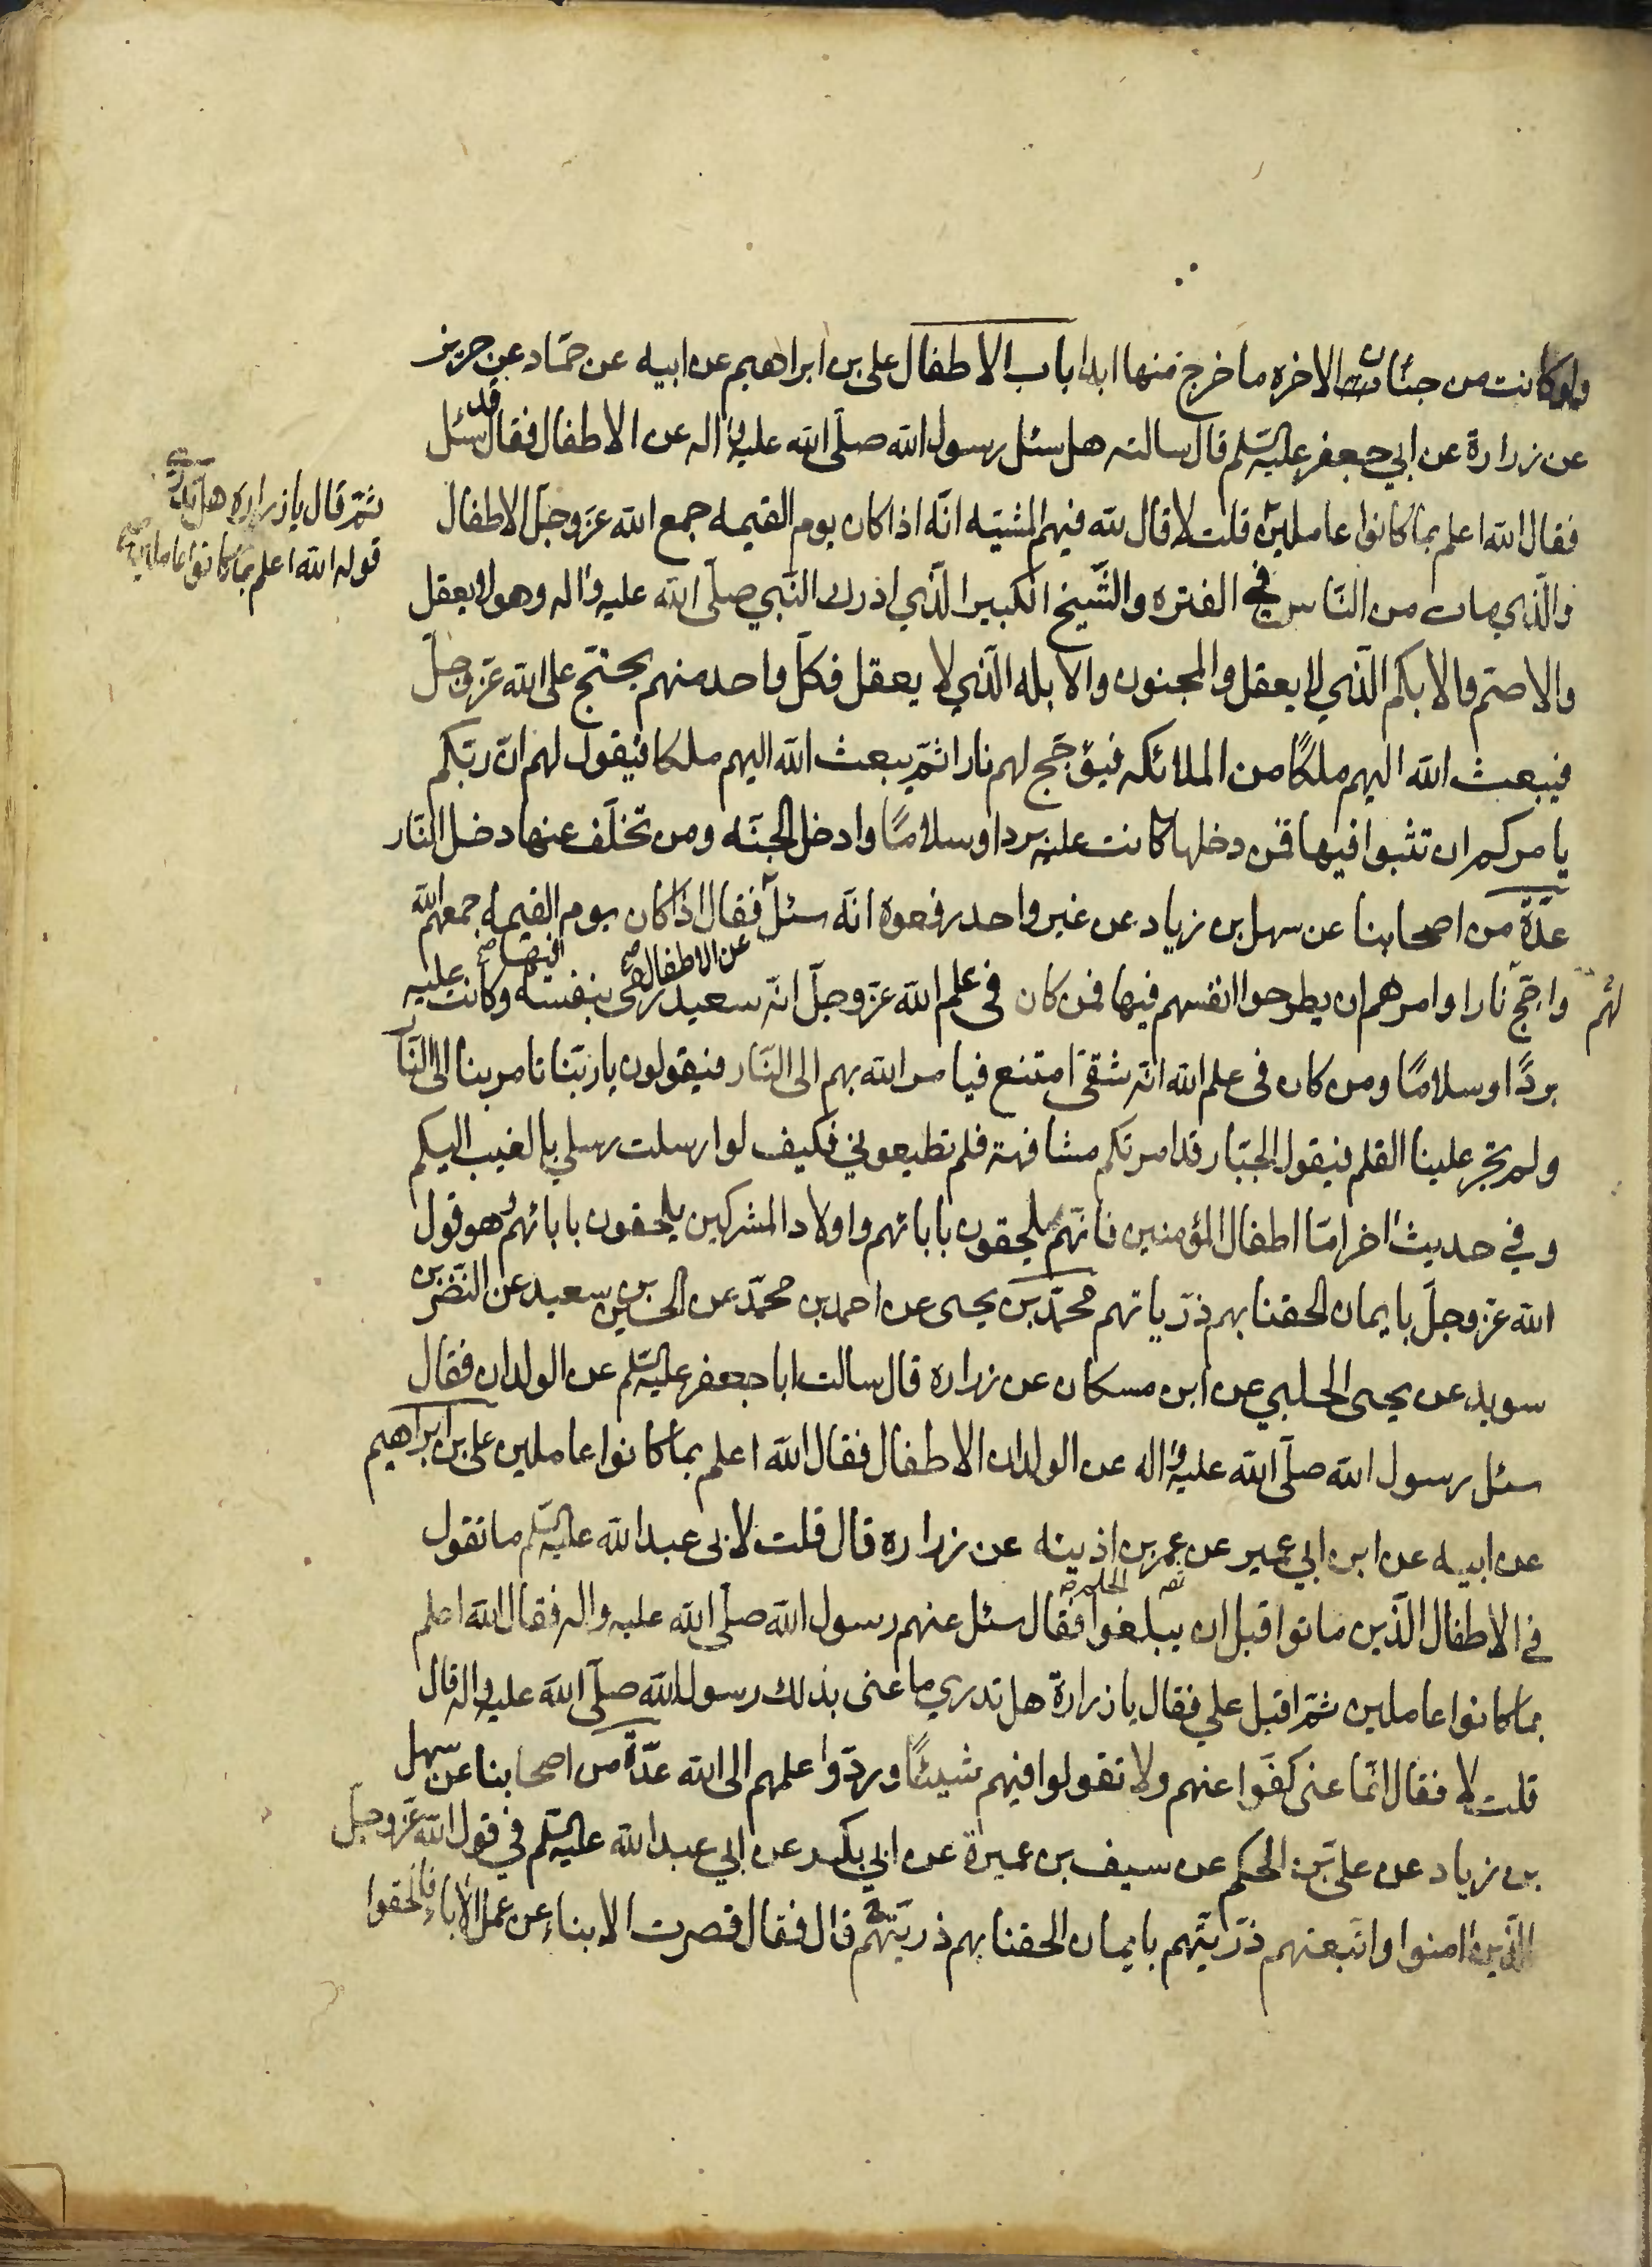 ولو كانت من جنات الاخره ما خرج منها ابدا باب الاطفال على بن ابراهيم عن ابيه عن حمّاد عن حريز
عن زرارة عن ابي جعفر عليه السّلم قال سالته هل سئل رسول الله صلّى الله عليه واله عن الاطفال فقال قد سئل
فقال الله اعلم بما كانوا عاملين قلت لا قال لله فيهم المشيّه انّه اذا كان يوم القيمه جمع الله عزّ وجلّ الاطفال
ثمّ قال يا زراره هل تدرى
قوله الله اعلم بما كانوا عاملين
والّذي مات من النّاس في الفتره والشّيخ الكبير الّذي ادرك النّبي صلّى الله عليه واله وهو لا يعقل
والاصمّ والابكم الّذي لا يعقل والمجنون والابله الّذي لا يعقل فكلّ واحد منهم يحتجّ على الله عزّ وجلّ
فيبعث الله اليهم ملكًا من الملائكه فيؤجّج لهم نارا ثمّ يبعث الله اليهم ملكا فيقول لهم انّ ربّكم
يامركم ان تثبوا فيها فمن دخلها كانت عليه بردا وسلامًا وادخل الجنّه ومن تخلّف عنها دخل النّار
عدّة من اصحابنا عن سهل بن زياد عن غير واحد رفعوه انّه سئل عن الاطفال فقال اذا كان يوم القيمه جمعهم الله
لهم واجّج نارا وامرهم ان يطرحوا انفسهم فيها فمن كان فى علم الله عزّ وجلّ انّه سعيد رمى بنفسه فيها وكانت عليه
بردًا وسلامًا ومن كان فى علم الله انّه شقىّ امتنع فيامر الله بهم الى النّار فيقولون يا ربّنا تامر بنا الى النّار
ولم تجر علينا القلم فيقول الجبّار قد امرتكم مشافهة فلم تطيعوني فكيف لو ارسلت رسلي بالغيب اليكم
وفي حديث اخر امّا اطفال المؤمنين فانّهم يلحقون بابائهم واولاد المشركين يلحقون بابائهم وهو قول
الله عزّ وجلّ بايمان الحقنا بهم ذرّياتهم محمّد بن يحيى عن احمد بن محمّد عن الحسين بن سعيد عن النّضر بن
سويد عن يحيى الحلبي عن ابن مسكان عن زراره قال سالت ابا جعفر عليه السّلم عن الولدان فقال
سئل رسول الله صلّى الله عليه واله عن الولدان الاطفال فقال الله اعلم بما كانوا عاملين على بن ابراهيم
عن ابيه عن ابن ابي عمير عن عمر بن اذينه عن زراره قال قلت لابى عبد الله عليه السّلم ما تقول
في الاطفال الّذين ماتوا قبل ان يبلغوا الحلم فقال سئل عنهم رسول الله صلّى الله عليه واله فقال الله اعلم
بما كانوا عاملين ثمّ اقبل علي فقال يا زرارة هل تدري ما عنى بذلك رسول الله صلّى الله عليه واله قال
قلت لا فقال انّما عنى كفّوا عنهم ولا تقولوا فيهم شيئًا وردّوا علمهم الى الله عدّة من اصحابنا عن سهل
بن زياد عن على بن الحكم عن سيف بن عميرة عن ابي بكير عن ابي عبد الله عليه السّلم في قول الله عزّ وجلّ
الّذين امنوا واتّبعتهم ذرّيّتهم بايمان الحقنا بهم ذرّيّتهم قال فقال قصرت الابناء عن عمل الاباء فالحقوا